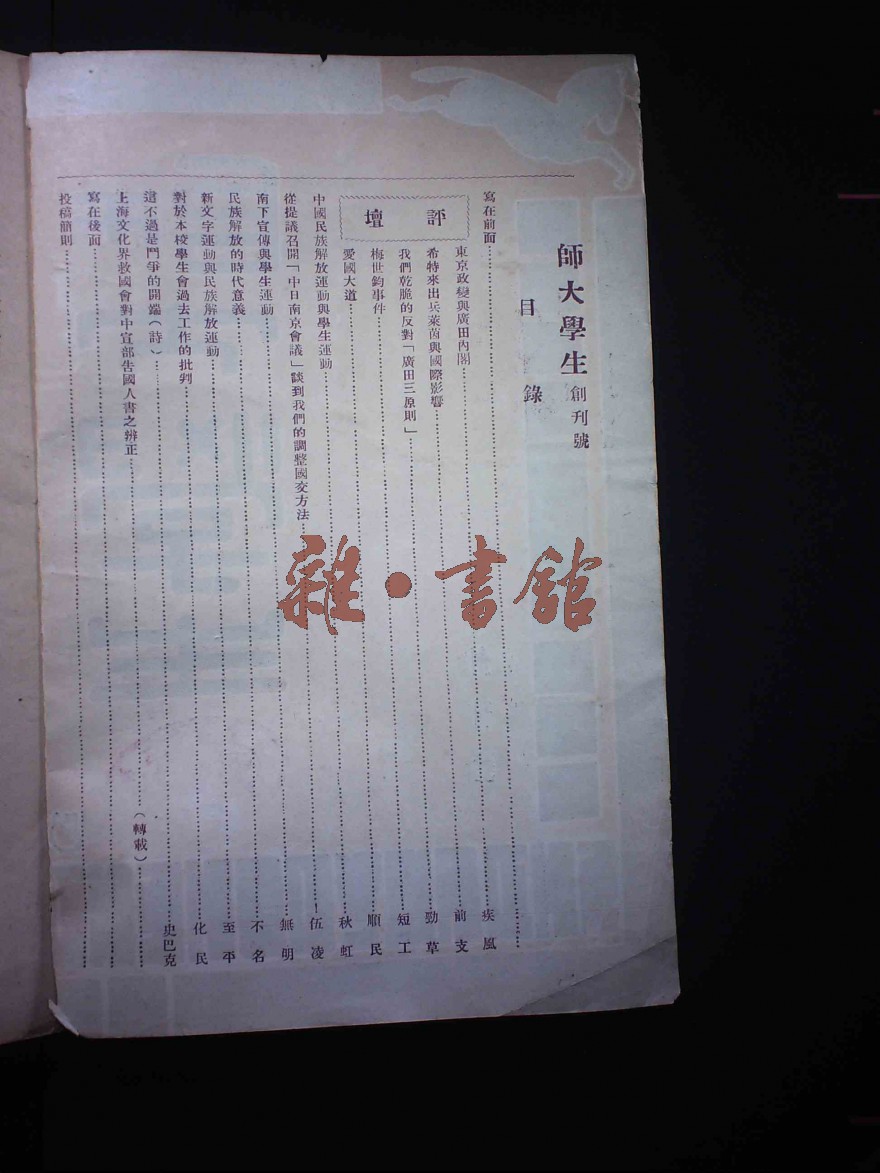 師大學生創刊號
目錄
寫在前面
評壇
東京政變與廣田內閣 疾風
希特來出兵萊茵與國際影響 前支
我們乾脆的反對「廣田三原則」 勁草
梅世鈞事件 短工
愛國大道 順民
中國民族解放運動與學生運動 秋虹
從提議召開「中日南京會議」談到我們的調整國交方法 伍凌
南下宣傳與學生運動 無明
民族解放的時代意義 不名
新文字運動與民族解放運動 至平
對於本校學生會過去工作的批判 化民
這不過是鬥爭的開端(詩) 史巴克
上海文化界救國會對中宣部告國人書之辨正 (轉載)
寫在後面
投稿簡則
雜·書館